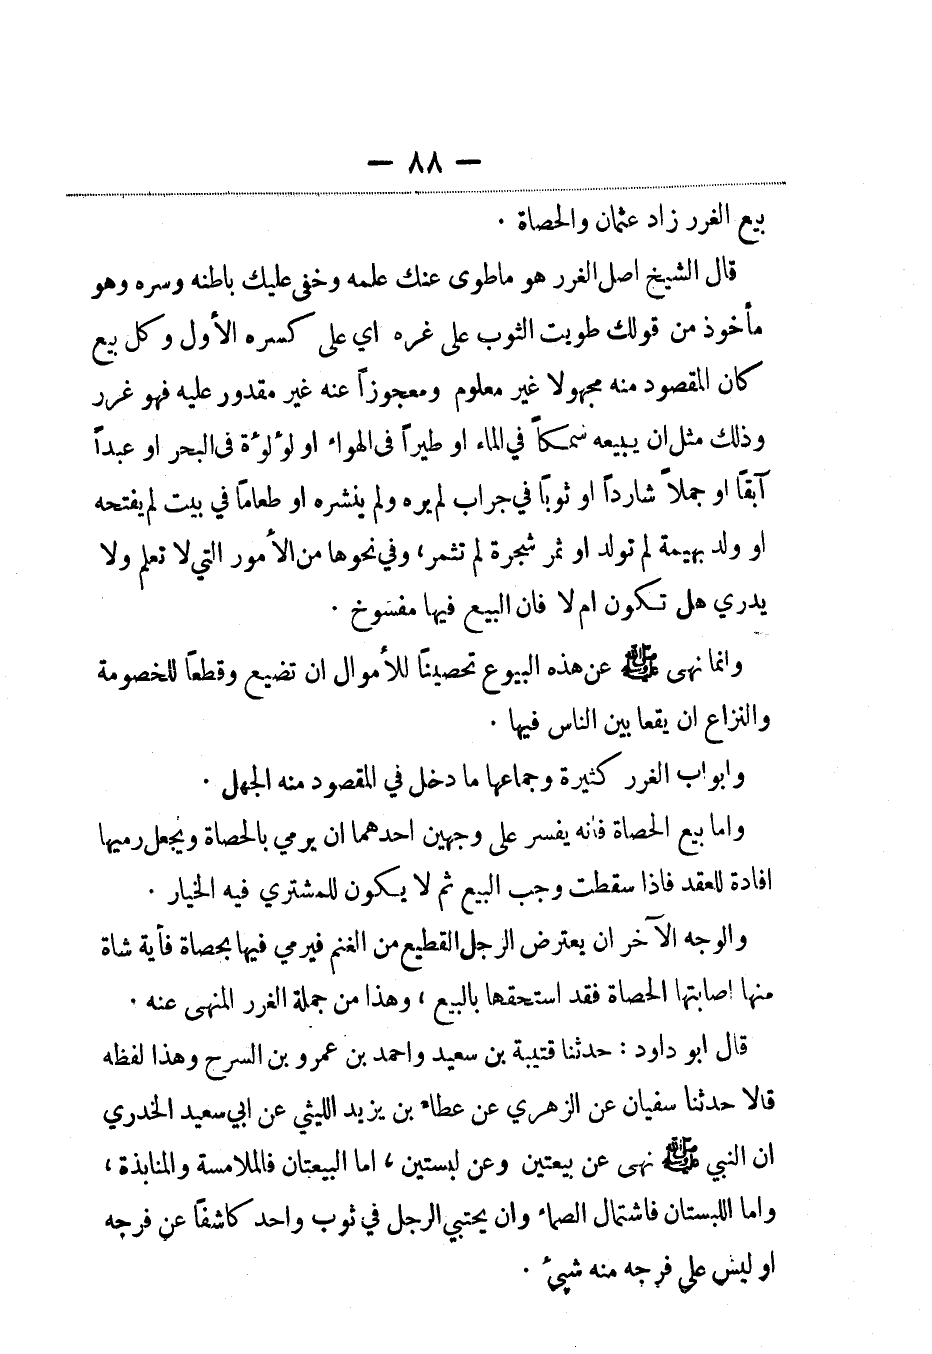 — ٨٨ —
بيع الغرر زاد عثمان والحصاة .
قال الشيخ اصل الغرر هو ماطوى عنك علمه وخفى عليك باطنه وسره وهو
مأخوذ من قولك طويت الثوب على غره اي على كسره الأول وكل بيع
كان المقصود منه مجهولا غير معلوم ومعجوزاً عنه غير مقدور عليه فهو غرر
وذلك مثل ان يبيعه سمكاً في الماء او طيراً فى الهواء او لؤلؤة فى البحر او عبداً
آبقاً او جملاً شارداً او ثوباً في جراب لم يره ولم ينشره او طعاماً في بيت لم يفتحه
او ولد بهيمة لم تولد او ثمر شجرة لم تثمر، وفي نحوها من الأمور التي لا تعلم ولا
يدري هل تكون ام لا فان البيع فيها مفسوخ .
وانما نهى ﷺ عن هذه البيوع تحصيناً للأموال ان تضيع وقطعاً للخصومة
والنزاع ان يقعا بين الناس فيها .
وابواب الغرر كثيرة وجماعها ما دخل في المقصود منه الجهل .
واما بيع الحصاة فأنه يفسر على وجهين احدهما ان يرمي بالحصاة ويجعل رميها
افادة للعقد فاذا سقطت وجب البيع ثم لا يكون للمشتري فيه الخيار .
والوجه الآخر ان يعترض الرجل القطيع من الغنم فيرمي فيها بحصاة فأية شاة
منها اصابتها الحصاة فقد استحقها بالبيع ، وهذا من جملة الغرر المنهى عنه .
قال ابو داود : حدثنا قتيبة بن سعيد واحمد بن عمرو بن السرح وهذا لفظه
قالا حدثنا سفيان عن الزهري عن عطاء بن يزيد الليثي عن ابي سعيد الخدري
ان النبي ﷺ نهى عن بيعتين وعن لبستين ، اما البيعتان فالملامسة والمنابذة ،
واما اللبستان فاشتمال الصماء وان يحتبي الرجل في ثوب واحد كاشفاً عن فرجه
او ليس على فرجه منه شيئ .